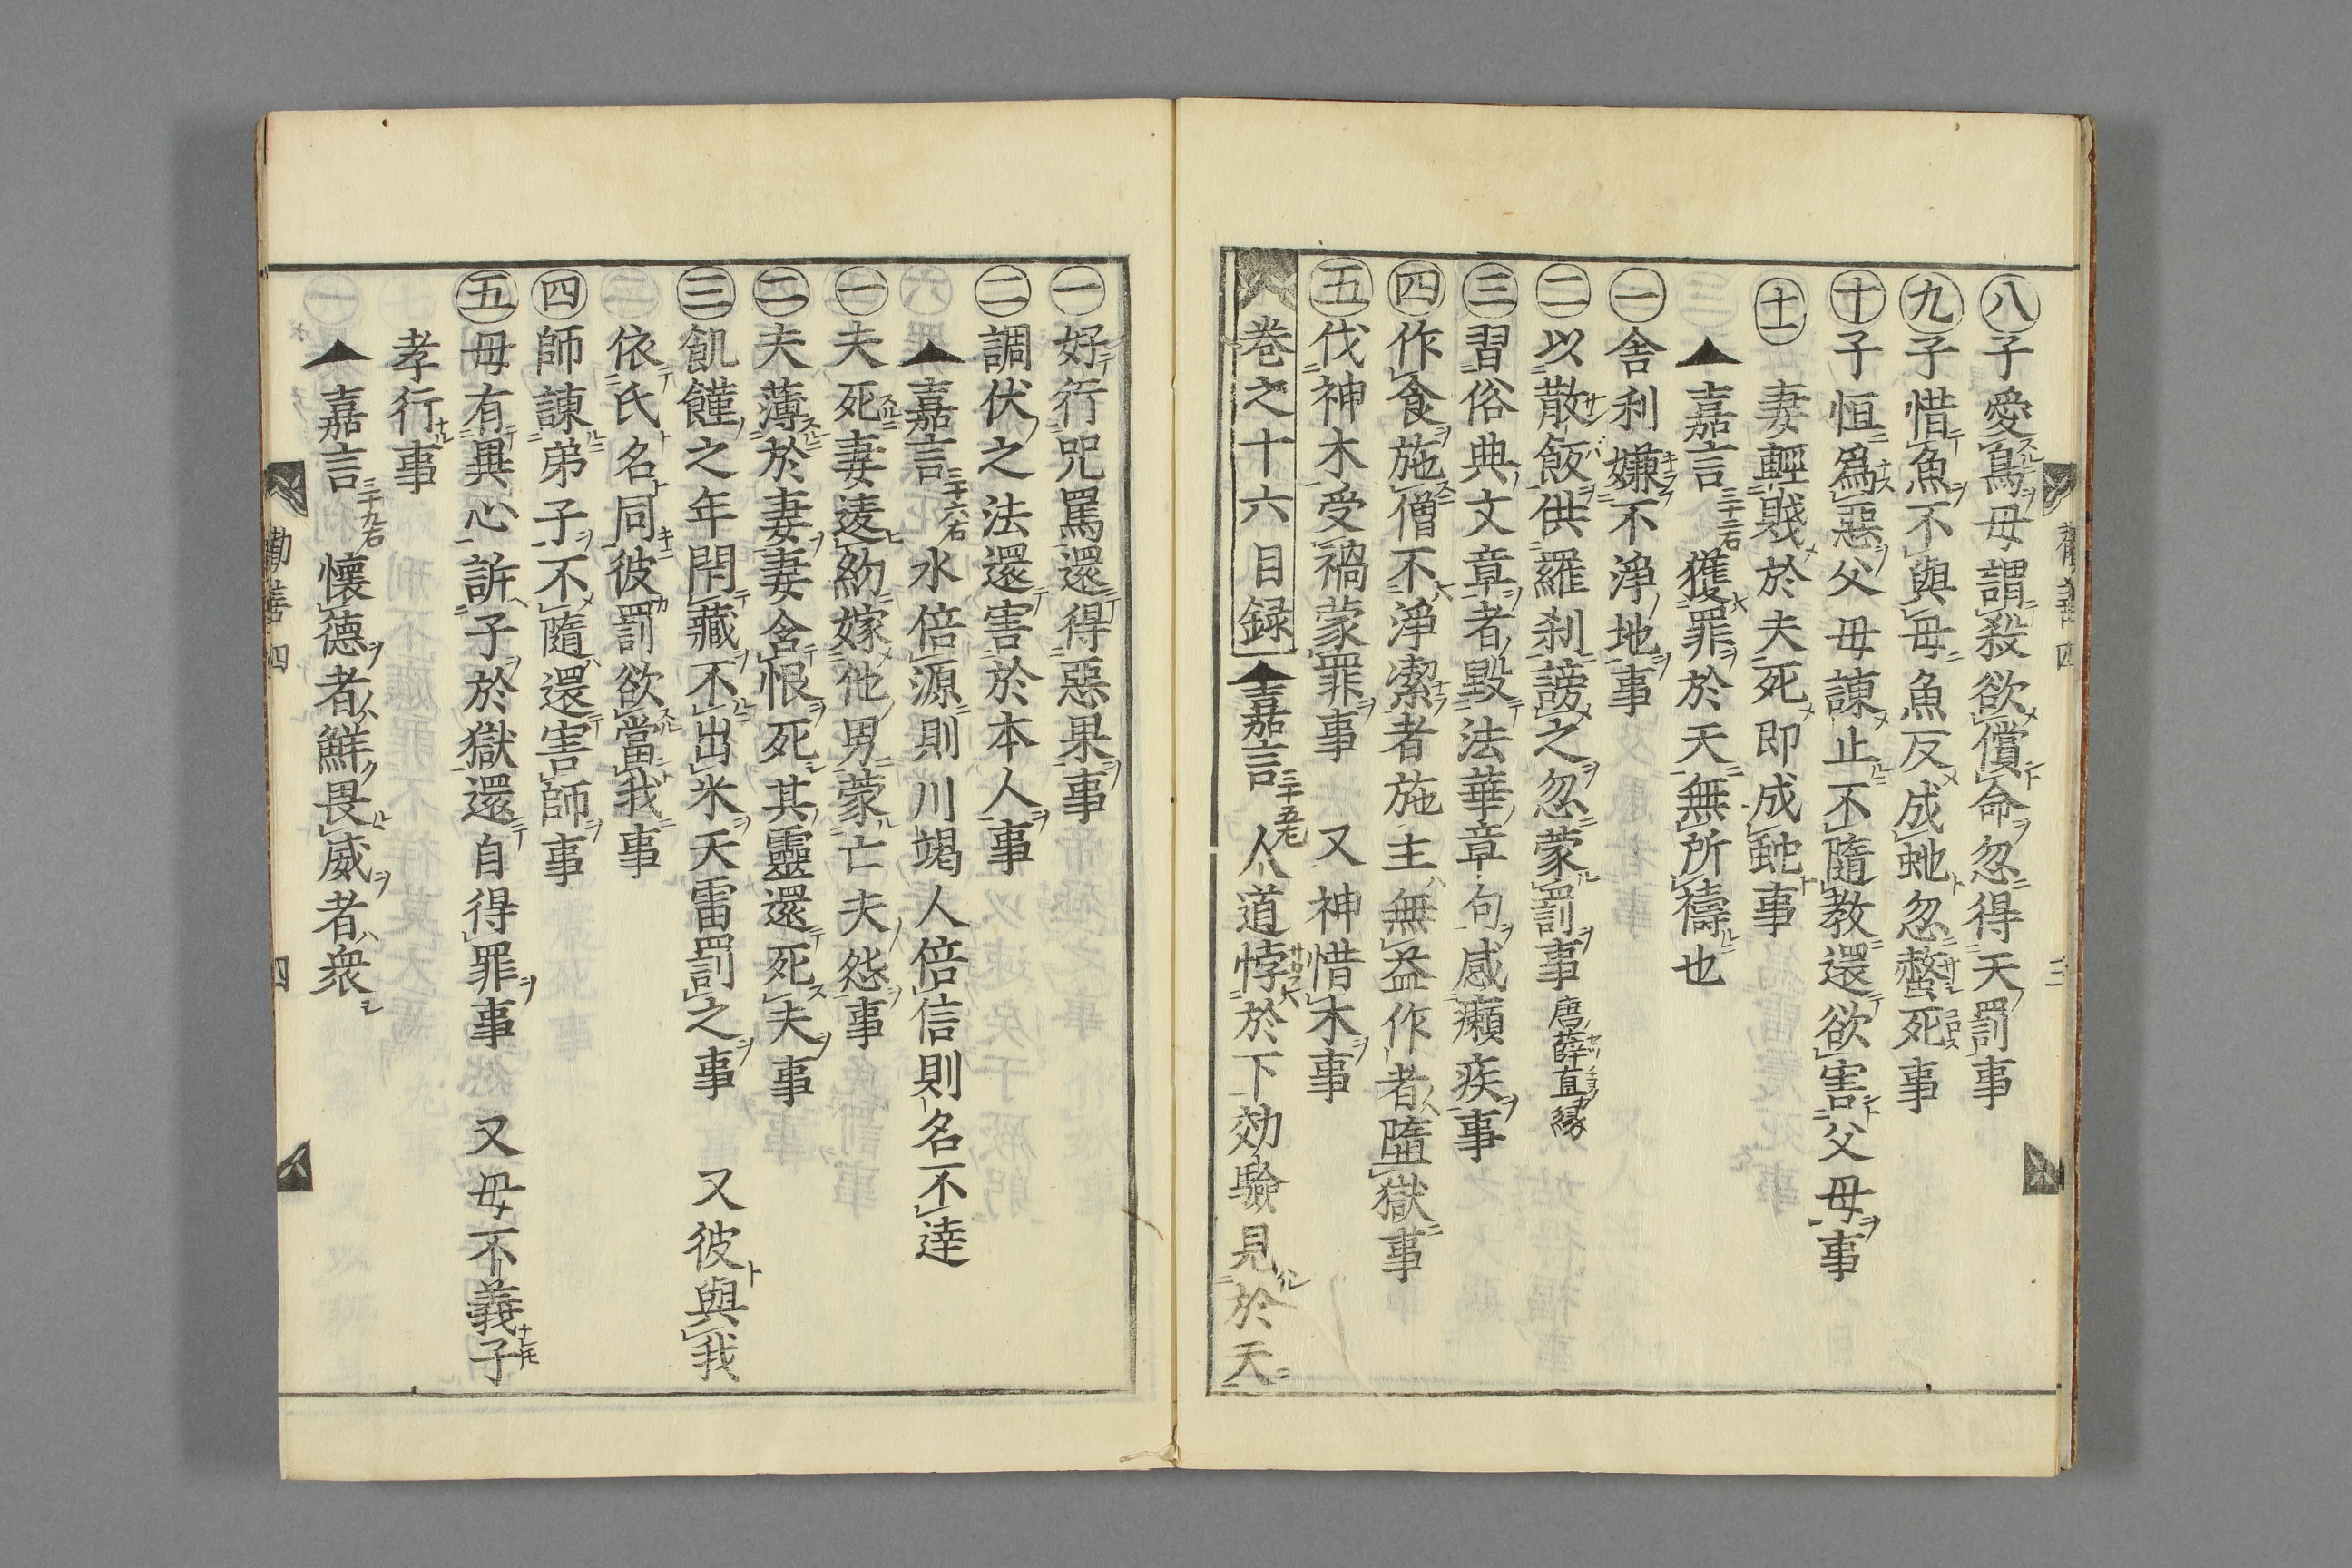 八子愛鳥母謂殺欲償命忽得天罰事
九子惜魚不與母魚反成虵忽螫死事
十子恒爲惡父母諌止不隨教還欲害父母事
十一妻輕賤於夫死即成虵事
嘉言三十二右 獲罪於天無所禱也
一舎利嫌不淨地事
二以散飯供羅刹謗之忽蒙罰事 唐薛直縁
三習俗典文章者毀法華章句感癩疾事
四作食施僧不淨潔者施主無益作者墮獄事
五伐神木受禍蒙罪事 又神惜木事
巻之十六目録 嘉言三十五左 人道悖於下効驗見於天
一好行咒罵還得惡果事
二調伏之法還害於本人事
嘉言三十六右 水倍源則川竭人倍信則名不達
一夫死妻違約嫁他男蒙亡夫怨事
二夫薄於妻妻含恨死其靈還死夫事
三飢饉之年閇藏不出米天雷罰之事 又彼與我
依氏名同彼罰欲當我事
四師諌弟子不隨還害師事
五母有異心訴子於獄還自得罪事 又母不義子
孝行事
嘉言三十九右 懷德者鮮畏威者衆
勸善四 四